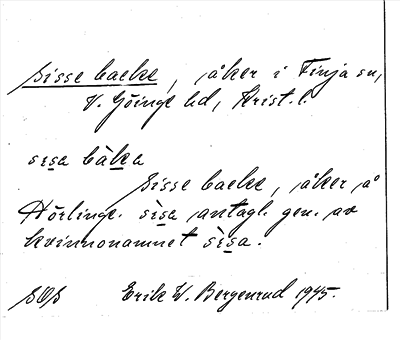 Sisse backe, åker i Finja sn,
V. Göinge hd, Krist. l.
sisa bàka
Sisse backe, åker på
Hörlinge. sìsa antagl. gen. av
kvinnonamnet sìsa.
SOS Erik W. Bergenrud 1945.